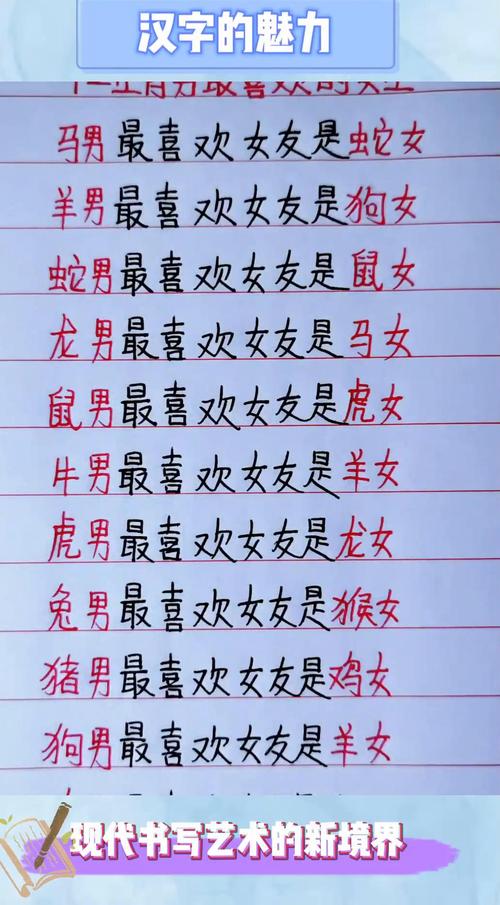 汉字的魅力
十二生肖男最喜欢的女生
马男最喜欢女友是蛇女
羊男最喜欢女友是狗女
蛇男最喜欢女友是鼠女
龙男最喜欢女友是马女
鼠男最喜欢女友是虎女
牛男最喜欢女友是羊女
虎男最喜欢女友是龙女
兔男最喜欢女友是猴女
猪男最喜欢女友是鸡女
狗男最喜欢女友是羊女
现代书写艺术的新境界